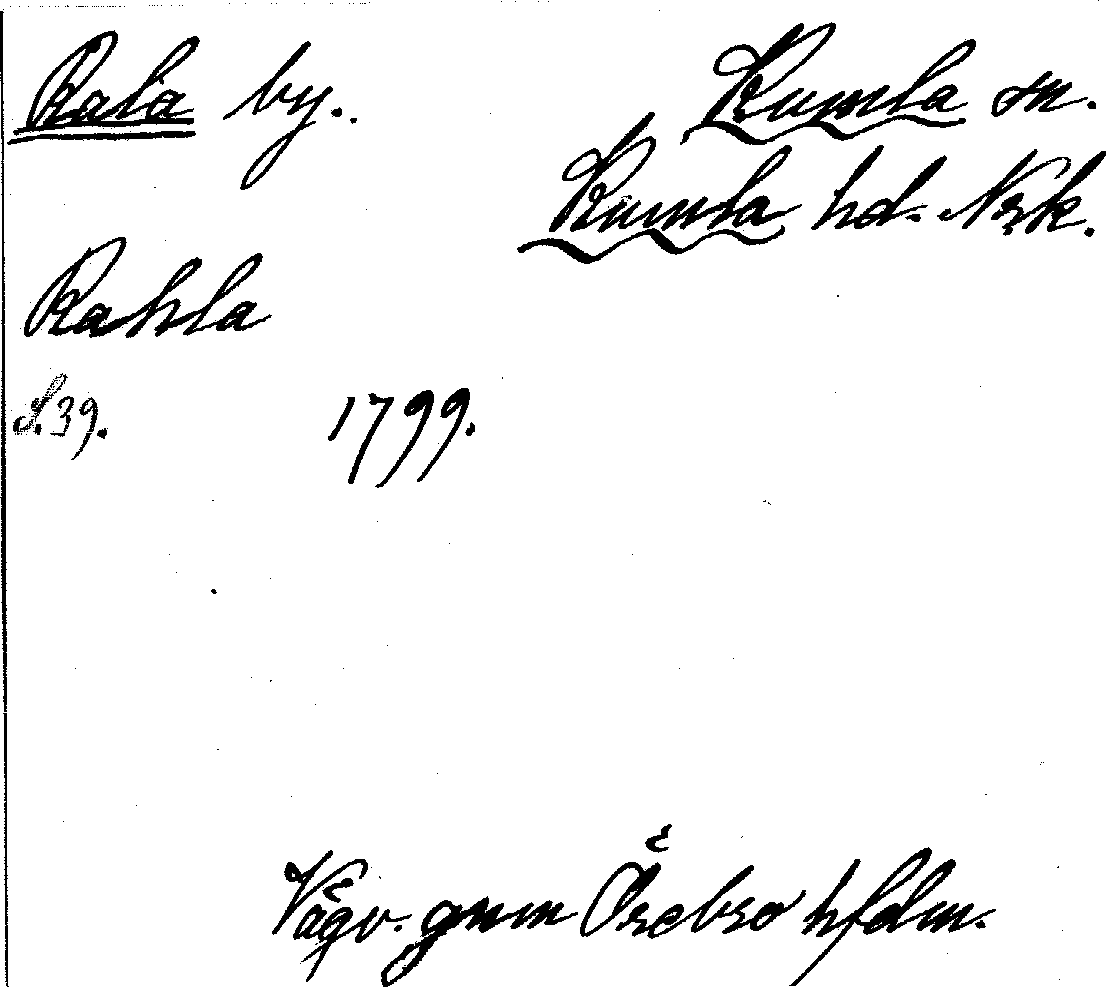 Rala by.
Kumla sn.
Kumla hd. Nrk.
Rahla
S.39. 1799.
Vägv. gnm Örebro hfdm.